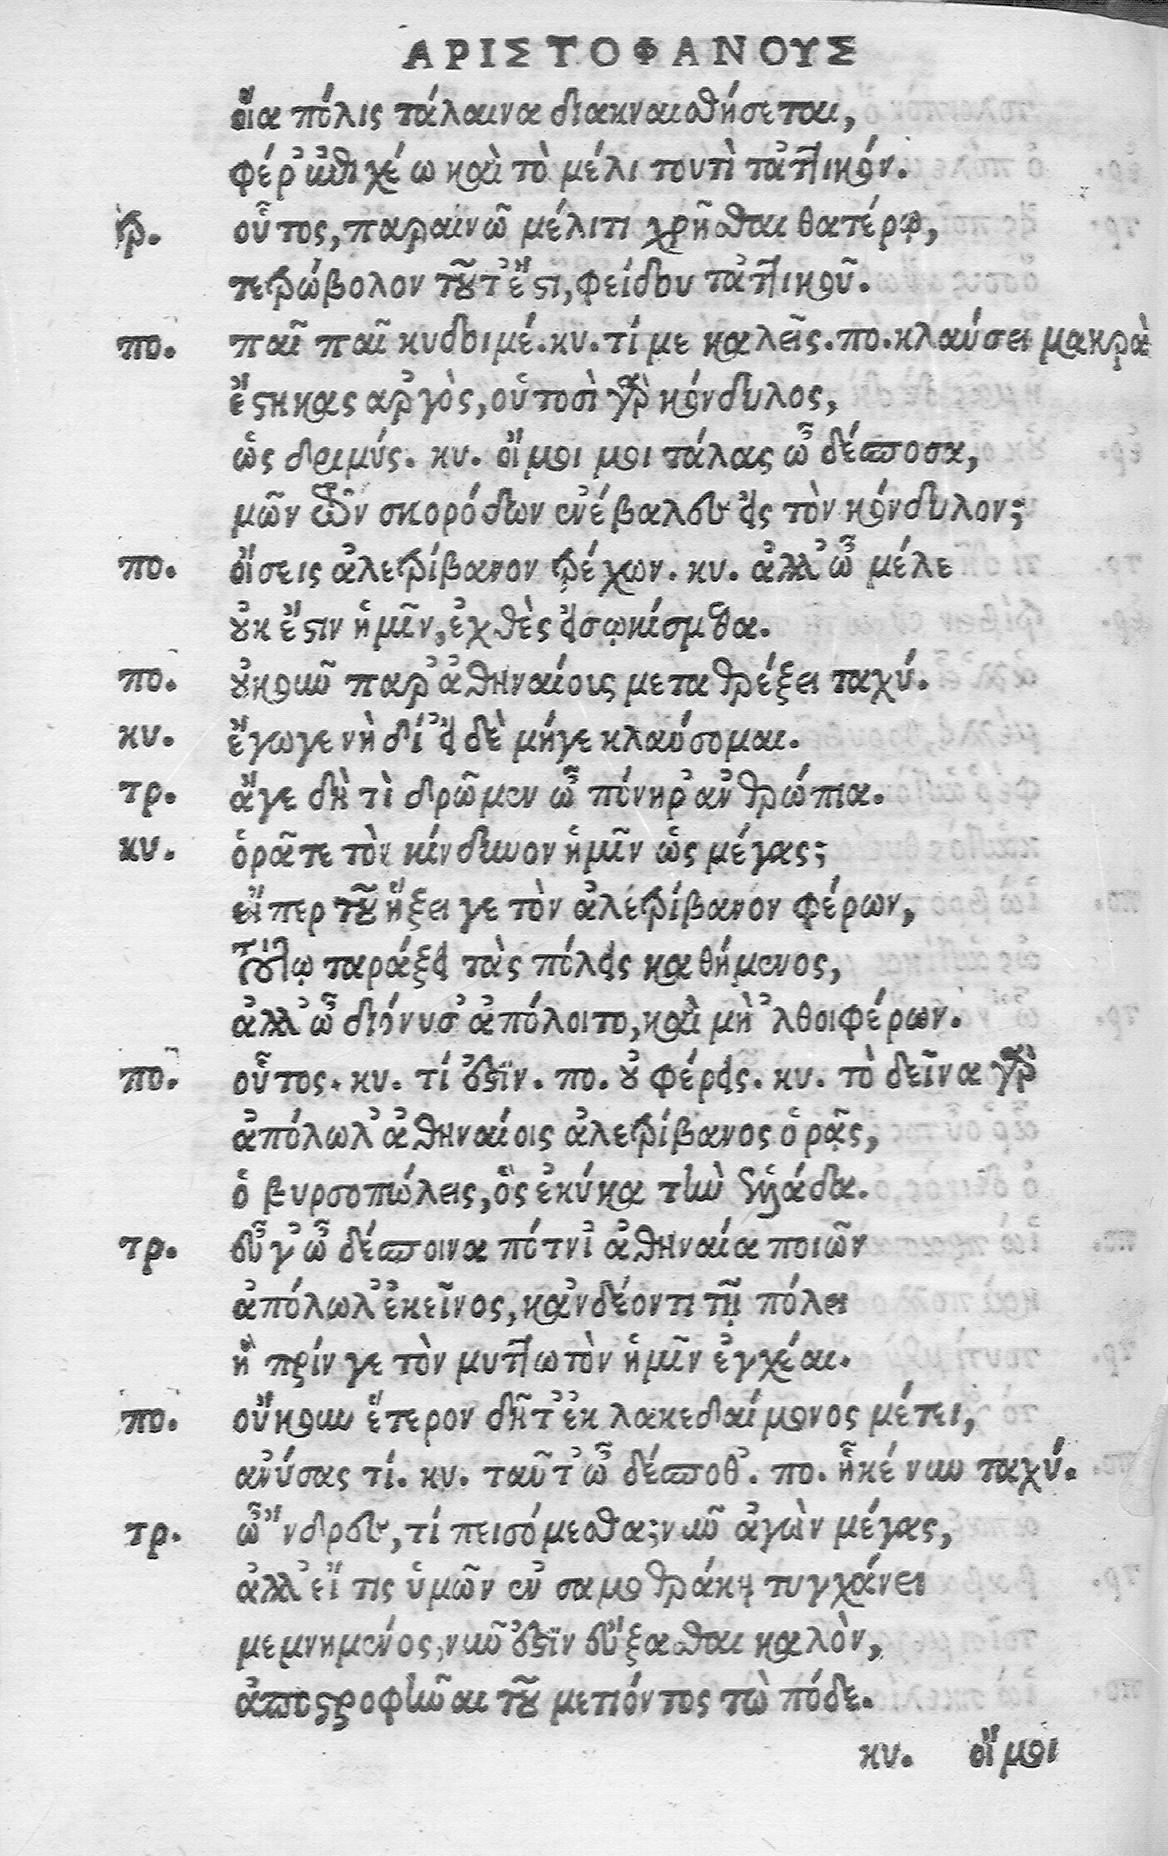 ΑΡΙΣΤΟΦΑΝΟΥΣ
οἵα πόλις τάλαινα διακναισθήσεται,
φέρ' ἐπιχέω καὶ τὸ μέλι τουτὶ τἀττικόν.
τρ. οὗτος, παραινῶ μέλιτι χρῆσθαι θατέρῳ,
τετρώβολον τοῦτ' ἔστι, φείδου τἀττικοῦ.
πο. παῖ παῖ κυδοιμέ. κυ. τί με καλεῖς. πο. κλαύσει μακρὰ
ἕστηκας αργὸς, οὑτοσὶ γὰρ κόνδυλος,
ὡς δριμύς. κυ. οἴμοι μοι τάλας ὦ δέσποτα,
μῶν οὖν σκορόδων ἐνέβαλες εἰς τὸν κόνδυλον;
πο. οἴσεις ἀλετρίβανον τρέχων. κυ. ἀλλ' ὦ μέλε
οὐκ ἔστιν ἡμῖν, ἐχθὲς εἰσῳκίσμεθα.
πο. οὐκοῦν παρ' ἀθηναίους μεταθρέξει ταχύ.
κυ. ἔγωγε νὴ δί' εἰ δὲ μήγε κλαύσομαι.
τρ. ἄγε δὴ τὶ δρῶμεν ὦ πόνηρ' ἀνθρώπια.
κυ. ὁρᾶτε τὸν κίνδυνον ἡμῖν ὡς μέγας;
εἴπερ γὰρ ἥξει γε τὸν ἀλετρίβανον φέρων,
τούτῳ ταράξει τὰς πόλεις καθήμενος,
ἀλλ' ὦ διόνυσ' ἀπόλοιτο, καὶ μὴ 'λθοι φέρων.
πο. οὗτος. κυ. τί ἐστίν. πο. οὐ φέρεις. κυ. τὸ δεῖνα γὰρ
ἀπόλωλ' ἀθηναίοις ἀλετρίβανος ὁρᾷς,
ὁ βυρσοπώλεις, ὃς ἐκύκα τὴν ἑλλάδα.
τρ. εὖ γ' ὦ δέσποινα πότνι' ἀθηναία ποιῶν
ἀπόλωλ' ἐκεῖνος, κἀν δέοντι τῇ πόλει
ἢ πρίν γε τὸν μυττωτὸν ἡμῖν ἐγχέαι.
πο. οὔκουν ἕτερον δῆτ' ἐκ λακεδαίμονος μέτει,
ανύσας τί. κυ. ταῦτ' ὦ δέσποθ'. πο. ἧκέ νυν ταχύ.
τρ. ὦ 'νδρες, τί πεισόμεσθα; νῦν ἀγὼν μέγας,
ἀλλ' εἴ τις ὑμῶν ἐν σαμοθράκῃ τυγχάνει
μεμνημένος, νῦν ἐστίν εὔξασθαι καλὸν,
ἀποστροφῆναι τοῦ μετιόντος τὼ πόδε.
κυ. οἴμοι